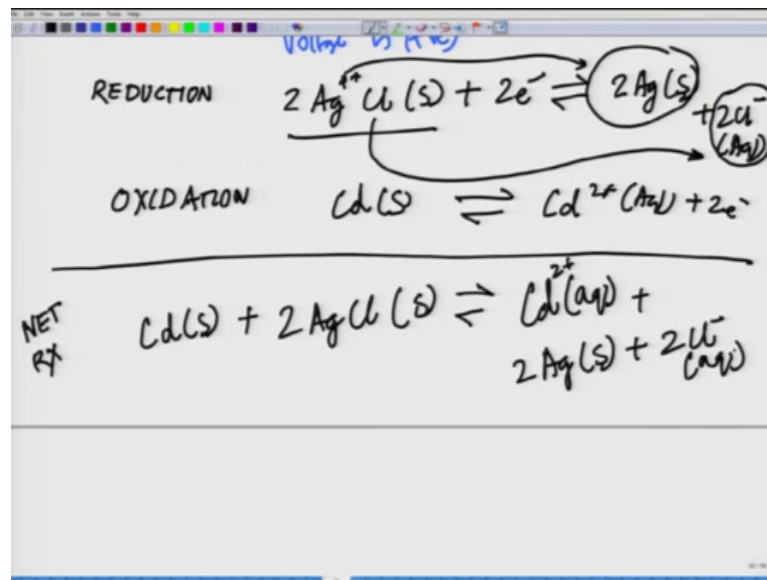 Voltage is (+ve)
REDUCTION 2 Ag⁺⁺ Cl (s) + 2e⁻ ⇌ 2 Ag(s) + 2Cl⁻ (Aq)
OXIDATION Cd(s) ⇌ Cd²⁺ (Aq) + 2e⁻
NET RX Cd(s) + 2 AgCl (s) ⇌ Cd²⁺(aq) +
2 Ag(s) + 2Cl⁻ (aq)